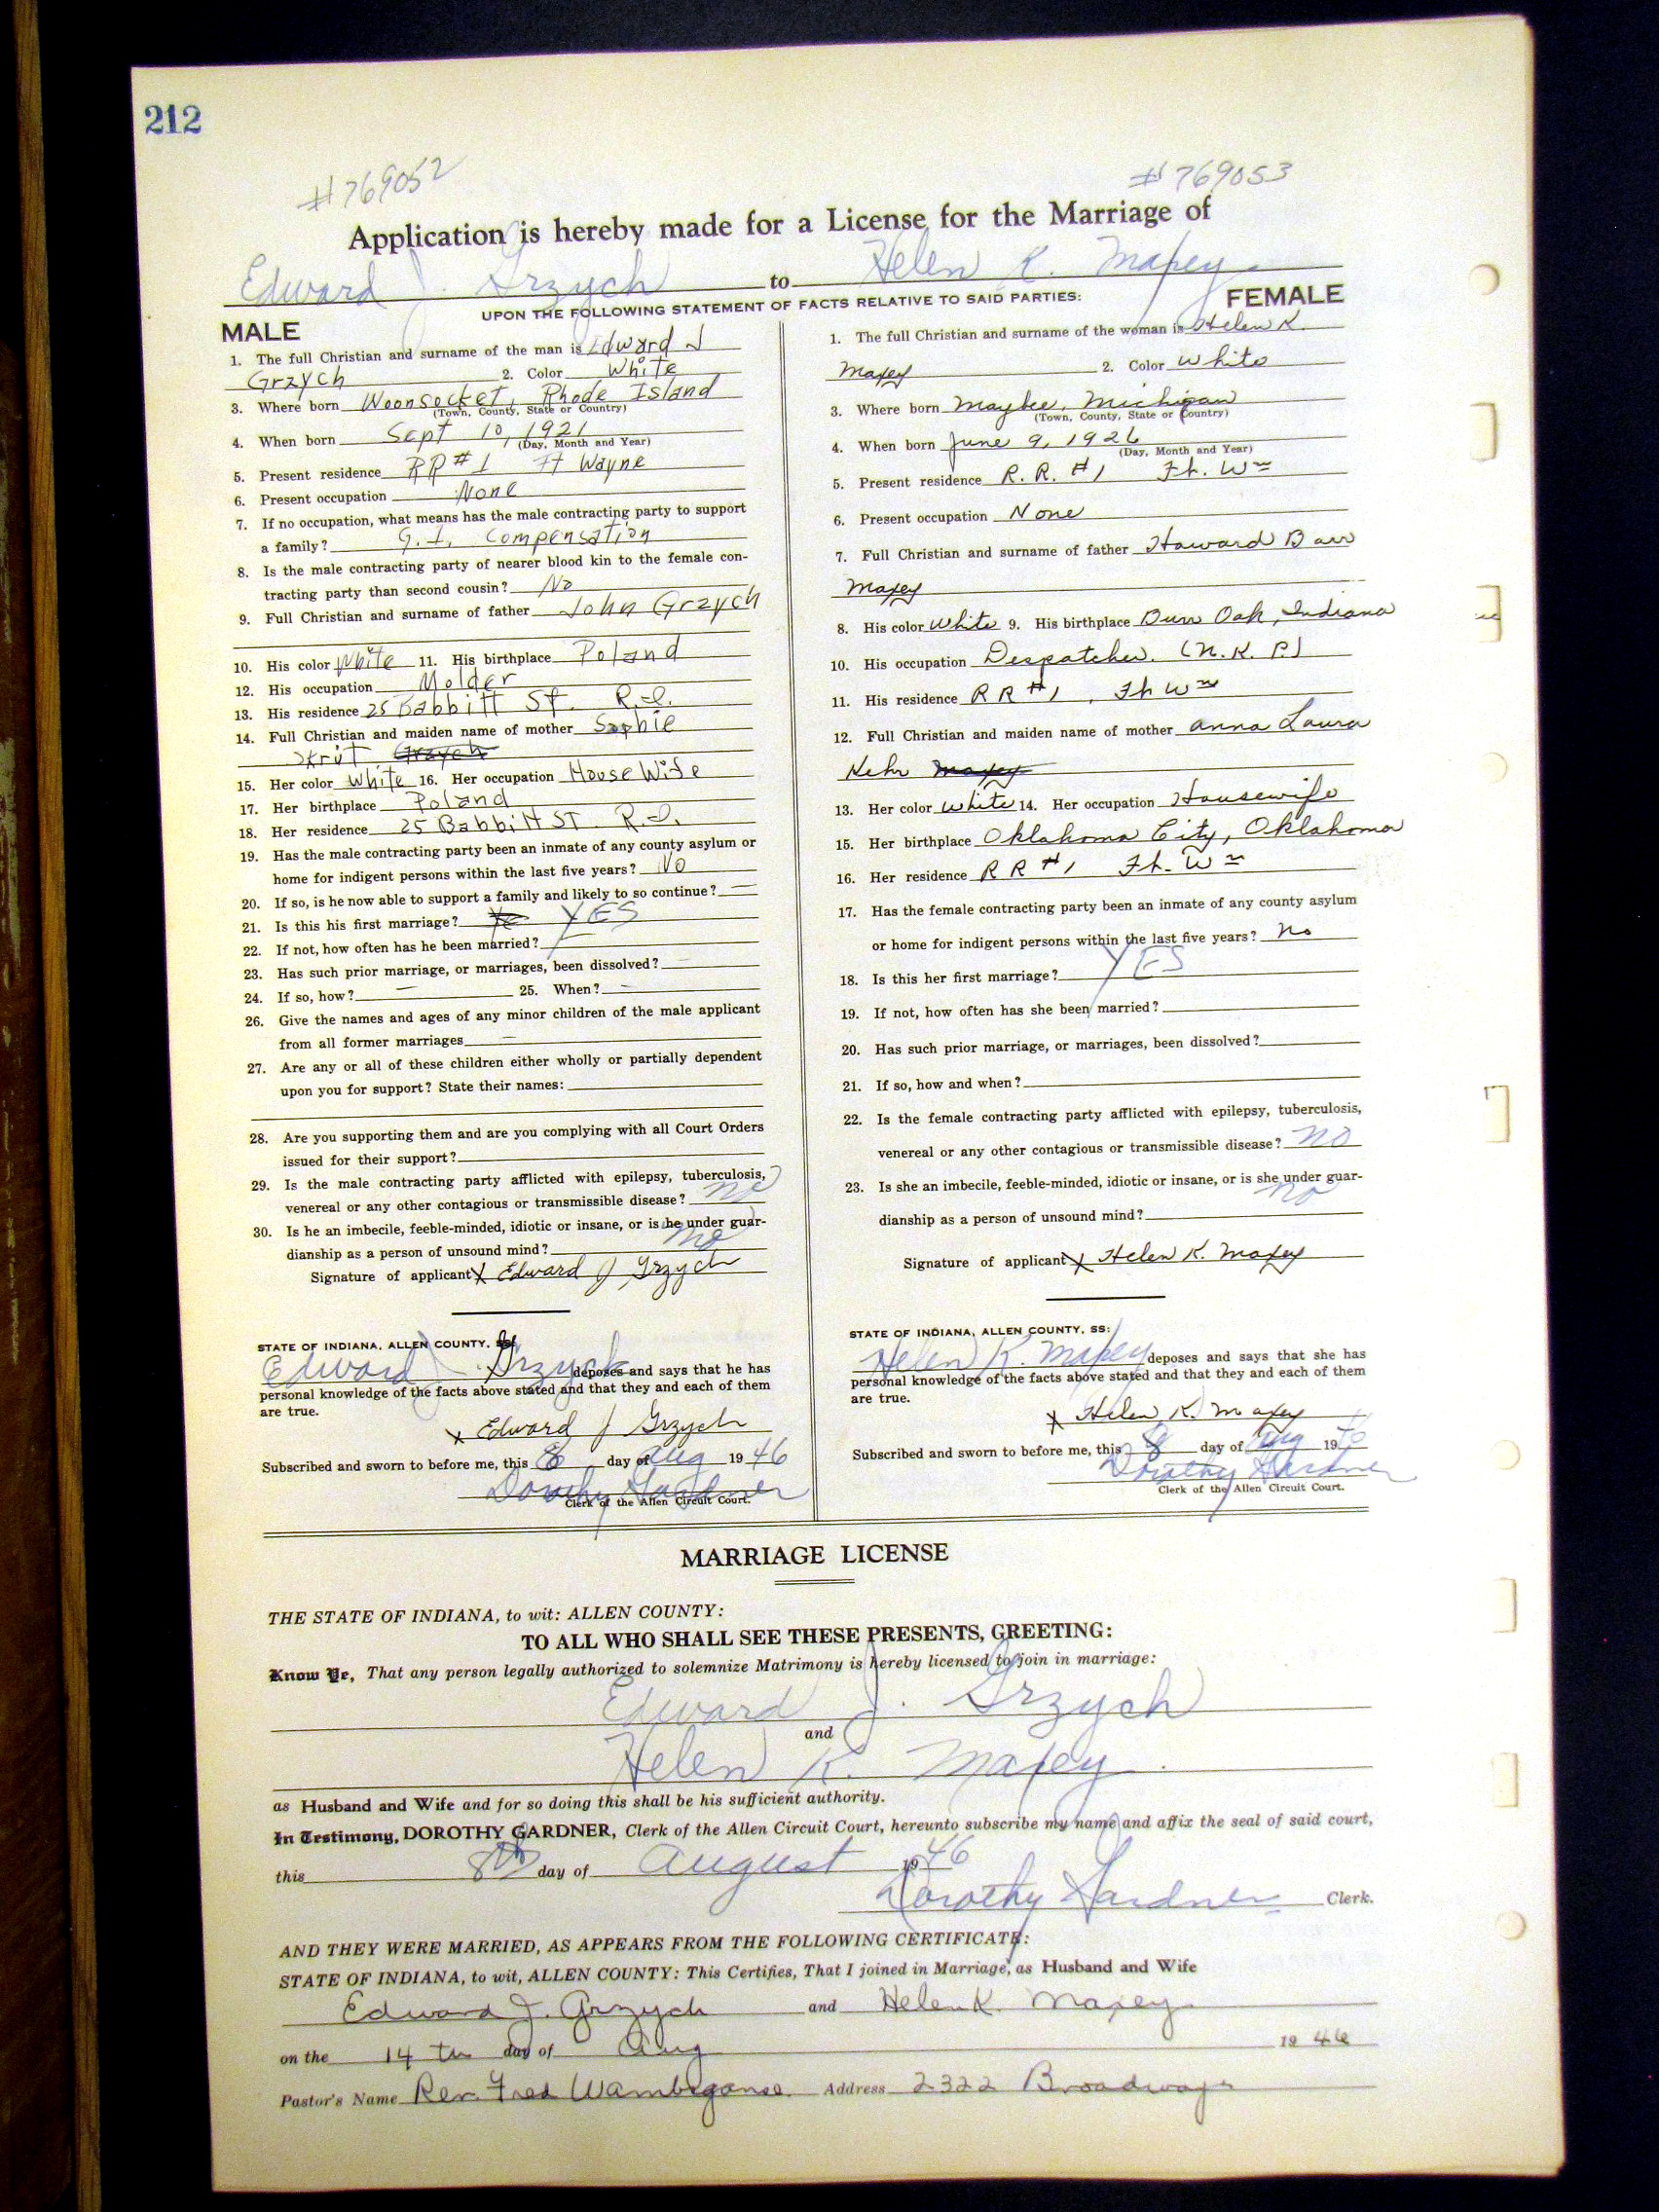 212
#769052 #769053
Application is hereby made for a License for the Marriage of
Edward J. Grzych to Helen K. Maxey
UPON THE FOLLOWING STATEMENT OF FACTS RELATIVE TO SAID PARTIES:
MALE
1. The full Christian and surname of the man is Edward J
Grzych 2. Color White
3. Where born Woonsocket, Rhode Island
(Town, County, State or Country)
4. When born Sept 10, 1921
(Day, Month and Year)
5. Present residence RR #1 Ft Wayne
6. Present occupation None
7. If no occupation, what means has the male contracting party to support
a family? G.I. Compensation
8. Is the male contracting party of nearer blood kin to the female con-
tracting party than second cousin? No
9. Full Christian and surname of father John Grzych
10. His color White 11. His birthplace Poland
12. His occupation Molder
13. His residence 25 Babbitt St. R.I.
14. Full Christian and maiden name of mother Sophie
Skrut Grzych
15. Her color White 16. Her occupation House Wife
17. Her birthplace Poland
18. Her residence 25 Babbitt ST. R.I.
19. Has the male contracting party been an inmate of any county asylum or
home for indigent persons within the last five years? No
20. If so, is he now able to support a family and likely to so continue? —
21. Is this his first marriage? YES
22. If not, how often has he been married? —
23. Has such prior marriage, or marriages, been dissolved? —
24. If so, how? — 25. When? —
26. Give the names and ages of any minor children of the male applicant
from all former marriages —
27. Are any or all of these children either wholly or partially dependent
upon you for support? State their names:
28. Are you supporting them and are you complying with all Court Orders
issued for their support?
29. Is the male contracting party afflicted with epilepsy, tuberculosis,
venereal or any other contagious or transmissible disease? no
30. Is he an imbecile, feeble-minded, idiotic or insane, or is he under guar-
dianship as a person of unsound mind? no
Signature of applicant X Edward J Grzych
STATE OF INDIANA, ALLEN COUNTY, SS:
Edward J. Grzych deposes and says that he has
personal knowledge of the facts above stated and that they and each of them
are true.
X Edward J Grzych
Subscribed and sworn to before me, this 8 day of Aug 1946
Dorothy Gardner
Clerk of the Allen Circuit Court.
FEMALE
1. The full Christian and surname of the woman is Helen K.
Maxey 2. Color White
3. Where born Maybee, Michigan
(Town, County, State or Country)
4. When born June 9, 1926
(Day, Month and Year)
5. Present residence R. R. #1 Ft. Wn
6. Present occupation None
7. Full Christian and surname of father Howard Barr
Maxey
8. His color White 9. His birthplace Burr Oak, Indiana
10. His occupation Despatcher. (N. K. P.)
11. His residence RR #1, Ft Wn
12. Full Christian and maiden name of mother Anna Laura
Kehr Maxey
13. Her color White 14. Her occupation Housewife
15. Her birthplace Oklahoma City, Oklahoma
16. Her residence RR #1 Ft. Wn
17. Has the female contracting party been an inmate of any county asylum
or home for indigent persons within the last five years? No
18. Is this her first marriage? YES
19. If not, how often has she been married?
20. Has such prior marriage, or marriages, been dissolved?
21. If so, how and when?
22. Is the female contracting party afflicted with epilepsy, tuberculosis,
venereal or any other contagious or transmissible disease? no
23. Is she an imbecile, feeble-minded, idiotic or insane, or is she under guar-
dianship as a person of unsound mind? no
Signature of applicant X Helen K. Maxey
STATE OF INDIANA, ALLEN COUNTY, SS:
Helen K. Maxey deposes and says that she has
personal knowledge of the facts above stated and that they and each of them
are true.
X Helen K. Maxey
Subscribed and sworn to before me, this 8 day of Aug 1946
Dorothy Gardner
Clerk of the Allen Circuit Court.
MARRIAGE LICENSE
THE STATE OF INDIANA, to wit: ALLEN COUNTY:
TO ALL WHO SHALL SEE THESE PRESENTS, GREETING:
Know Ye, That any person legally authorized to solemnize Matrimony is hereby licensed to join in marriage:
Edward J. Grzych
and
Helen K. Maxey
as Husband and Wife and for so doing this shall be his sufficient authority.
In Testimony, DOROTHY GARDNER, Clerk of the Allen Circuit Court, hereunto subscribe my name and affix the seal of said court,
this 8th day of August 1946
Dorothy Gardner Clerk.
AND THEY WERE MARRIED, AS APPEARS FROM THE FOLLOWING CERTIFICATE:
STATE OF INDIANA, to wit, ALLEN COUNTY: This Certifies, That I joined in Marriage, as Husband and Wife
Edward J. Grzych and Helen K. Maxey
on the 14 th day of Aug 1946
Pastor's Name Rev. Fred Wambsganss Address 2322 Broadway